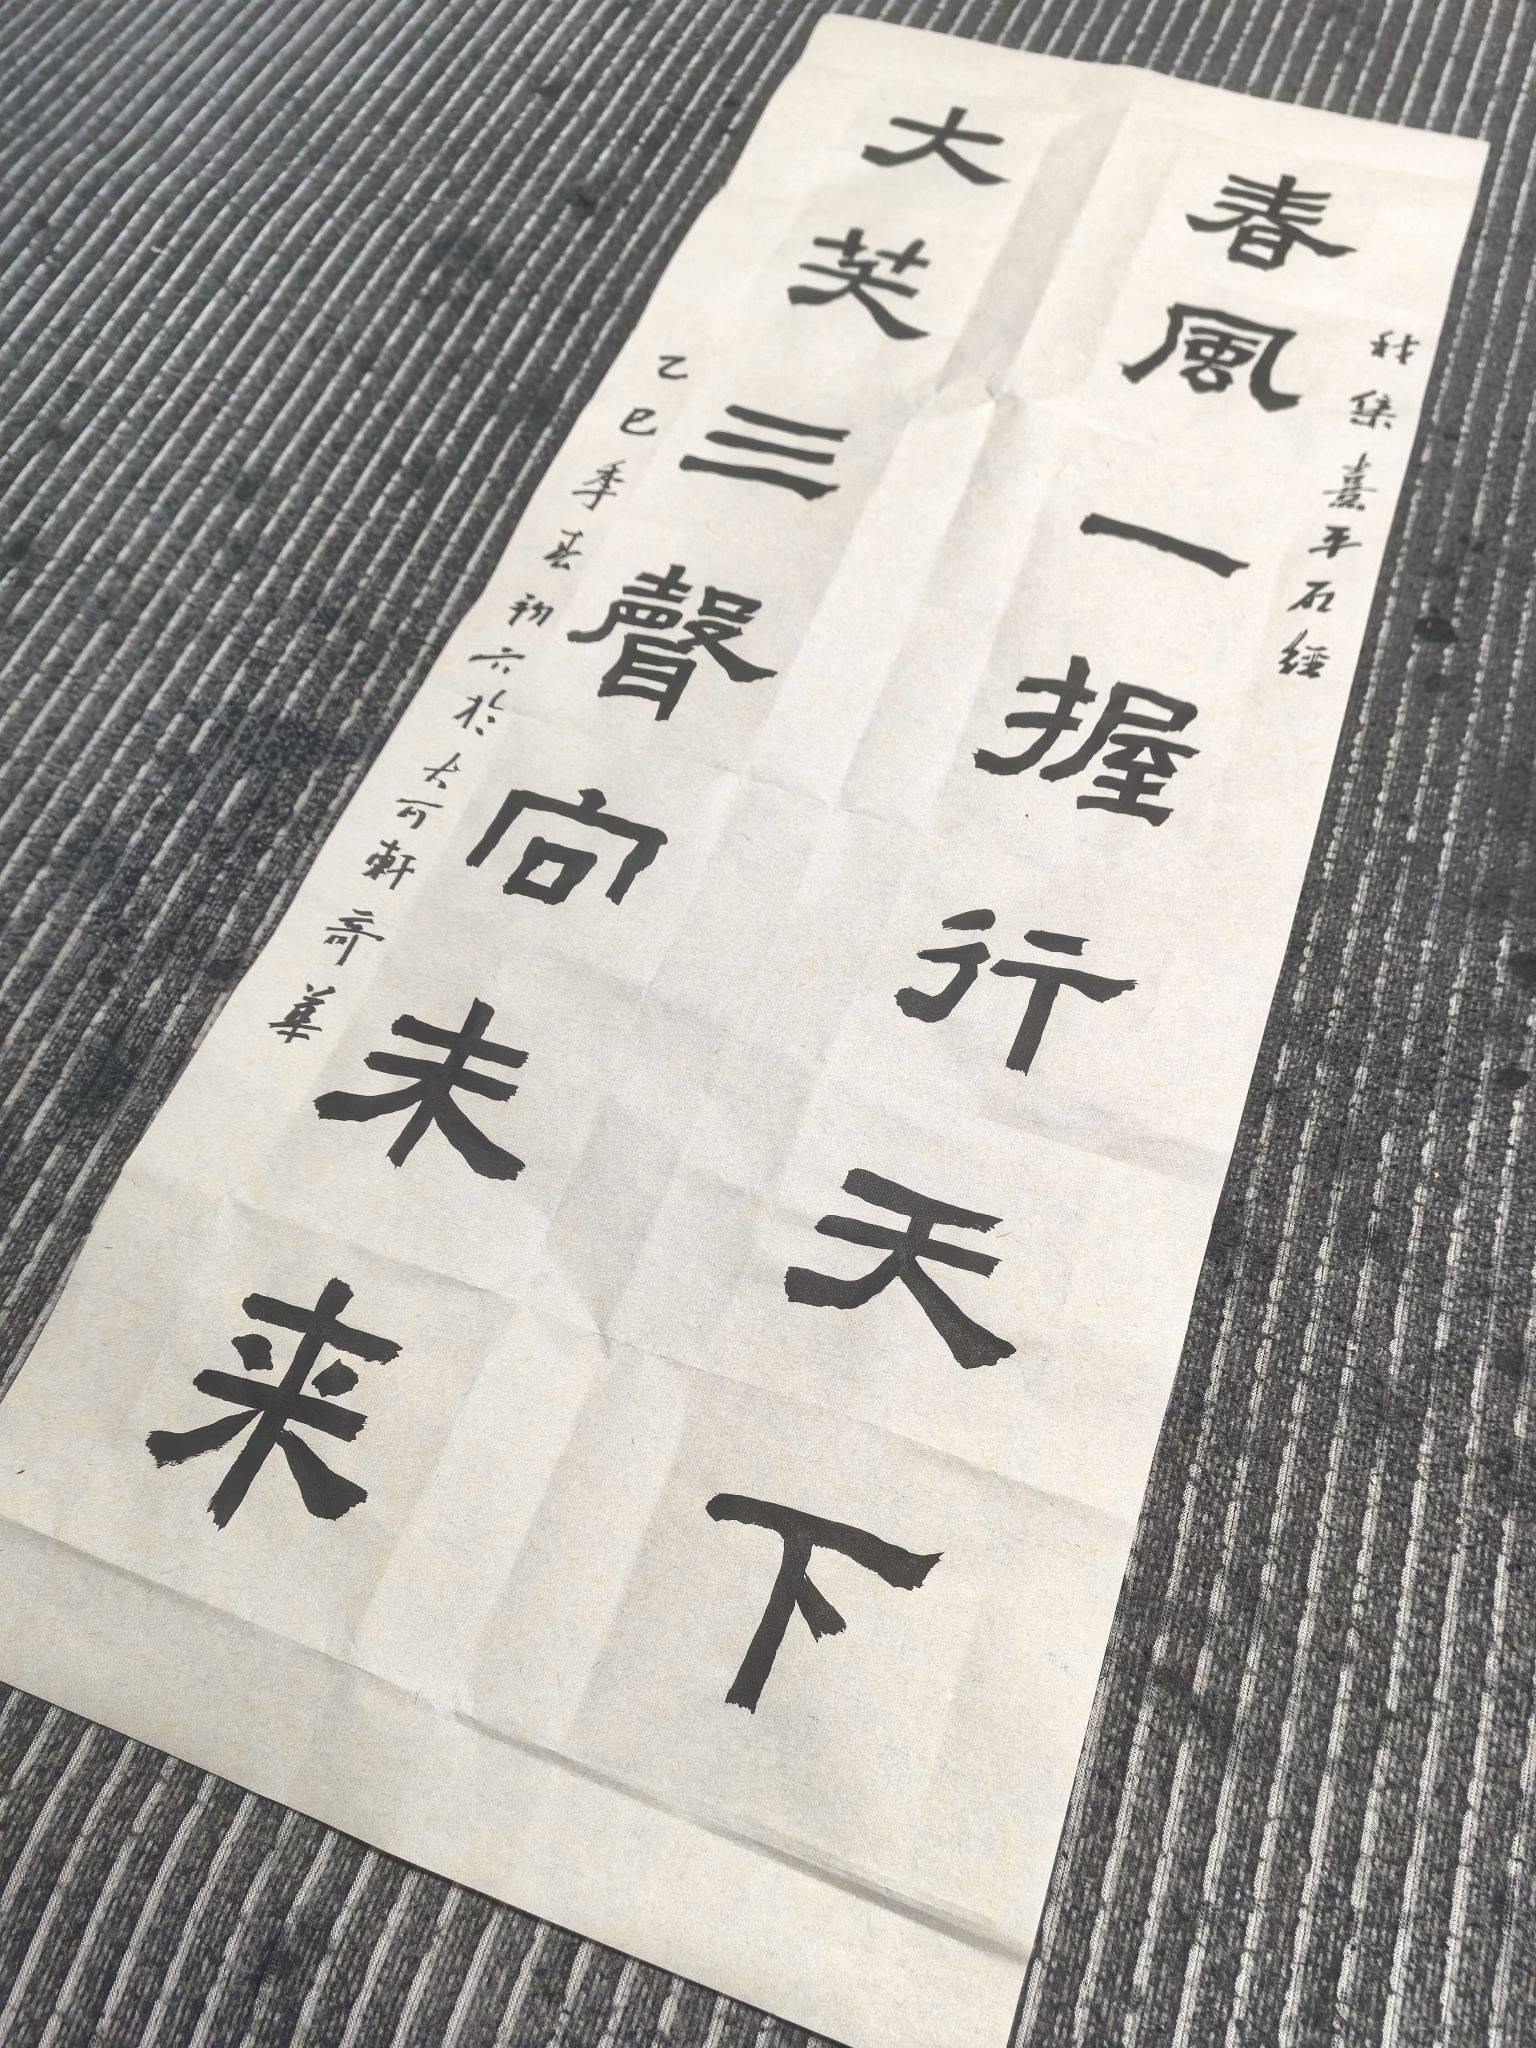 春風一握行天下
集熹平石經
大笑三聲向未来
乙巳季春初六於大可軒